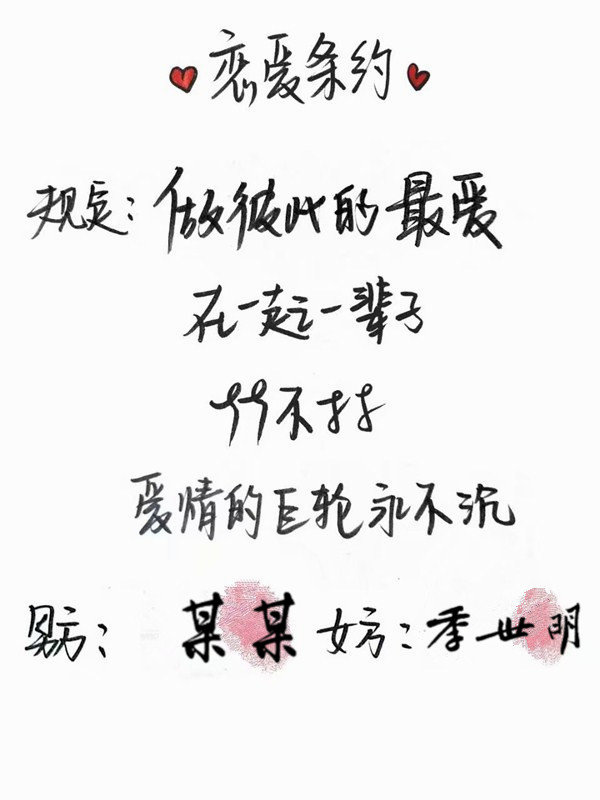 恋爱条约
规定：做彼此的最爱
在一起一辈子
不
爱情的巨轮永不沉
男方：某某 女方：季世明